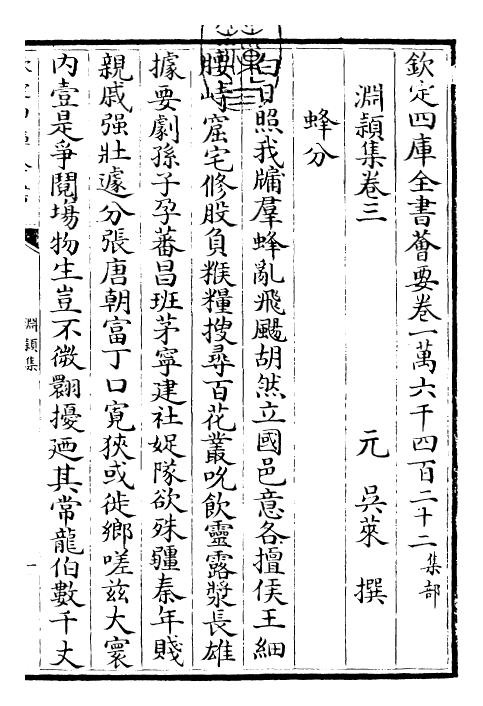 欽定四庫全書薈要卷一萬六千四百二十二集部
淵穎集卷三
元 吳萊 撰
蜂分
白日照我牖羣蜂亂飛颺胡然立國邑意各擅侯王細
腰峙窟宅修股負糇糧搜尋百花叢吮飲靈露漿長雄
據要劇孫子孕蕃昌班茅寧建社娖隊欲殊疆秦年賤
親戚强壯遽分張唐朝富丁口寛狹或徙鄉嗟兹大寰
内壹是爭鬩塲物生豈不微翾擾廼其常龍伯數千丈
淵穎集
一